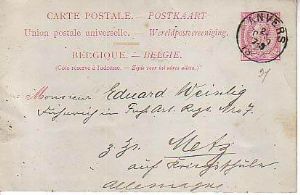 CARTE POSTALE. - POSTKAART
Union postale universelle. - Wereldpostvereeniging.
BELGIQUE. - BELGIË.
(Côté réservé à l'adresse. - Zijde voor het adres alleen.)
ANVERS
Monsieur Eduard Weinlig
Fähnrich im Fuss Art. Reg. No 7.
z. Zt. Metz
auf Kriegsschule
Allemagne